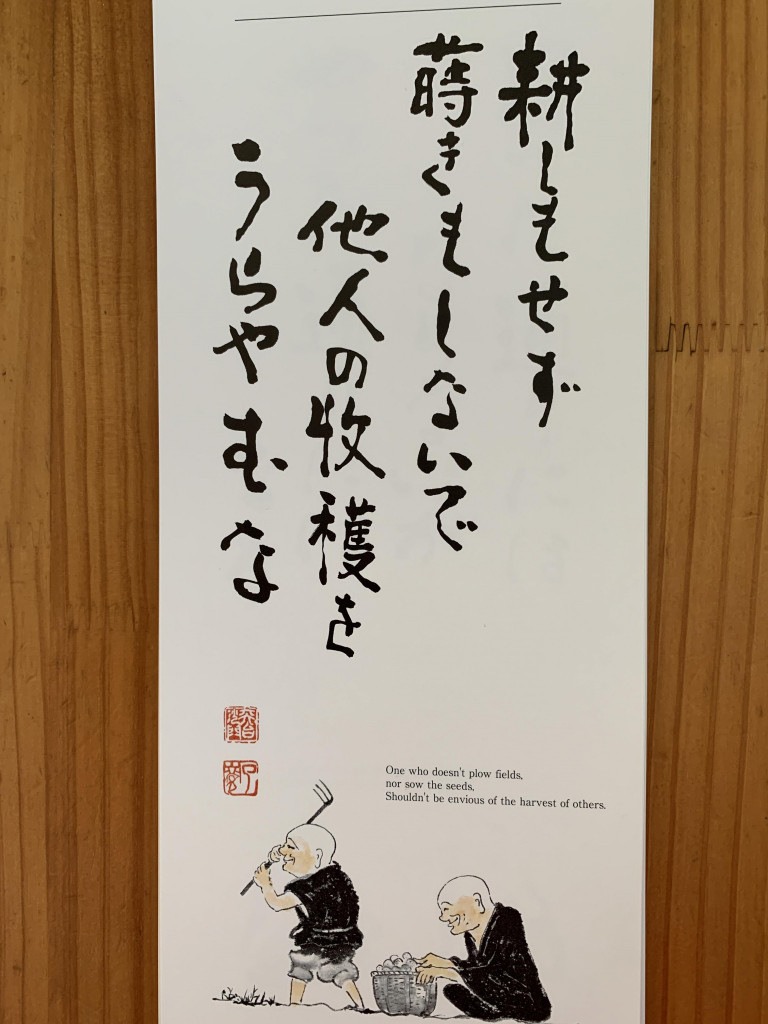 耕しもせず
蒔きもしないで
他人の收穫を
うらやむな
One who doesn't plow fields,
nor sow the seeds,
Shouldn't be envious of the harvest of others.